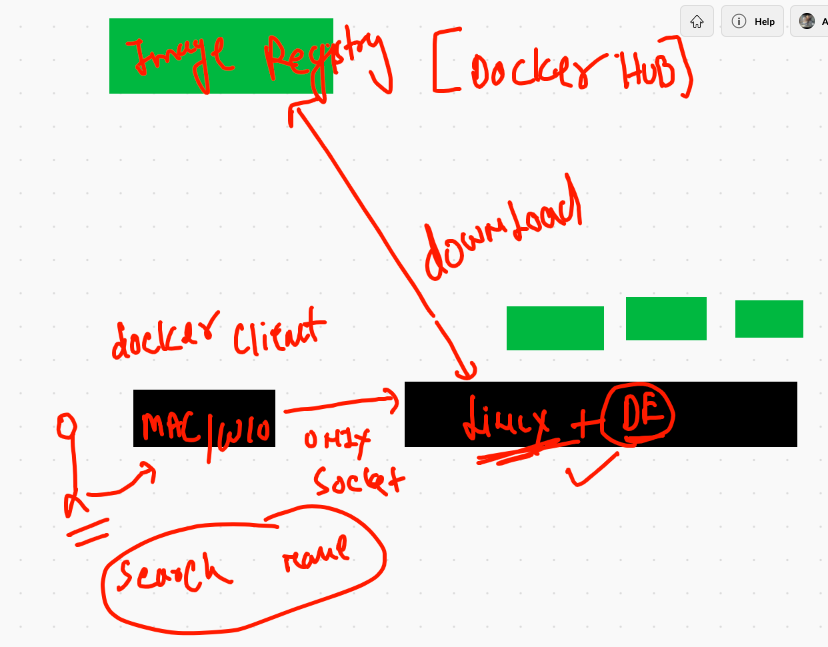 Help
A
Image Registry [Docker HUB]
download
docker client
MAC/W10
Linux + DE
unix
socket
search name